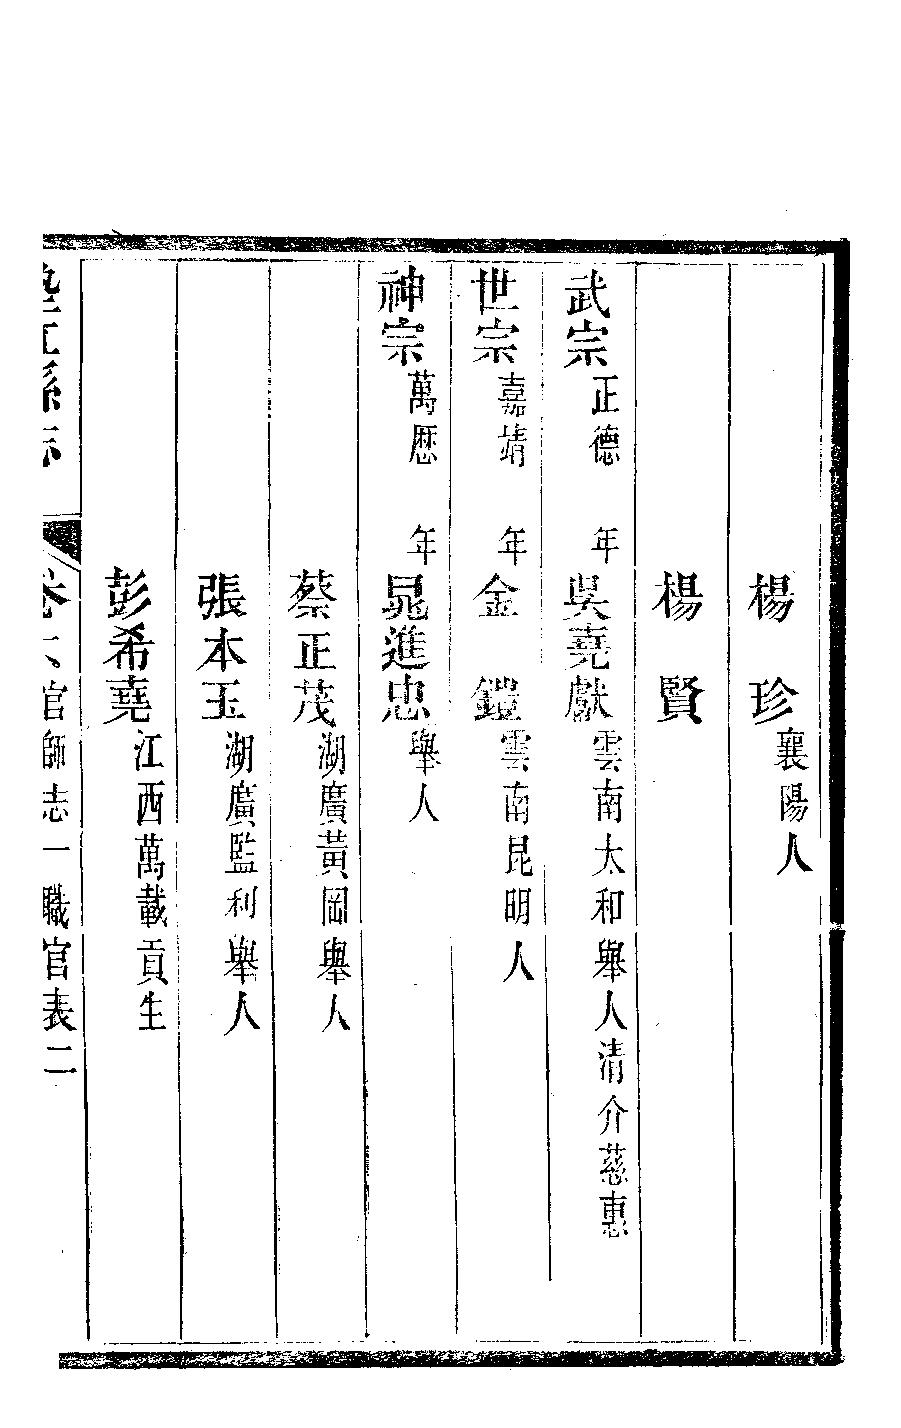 楊珍襄陽人
楊賢
武宗正德 年吳堯獻雲南太和舉人清介慈惠
世宗嘉靖 年金鎧雲南昆明人
神宗萬歷 年晁進忠舉人
蔡正茂湖廣黃岡舉人
張本玉湖廣監利舉人
彭希堯江西萬載貢生
江縣志 卷六官師志一職官表二